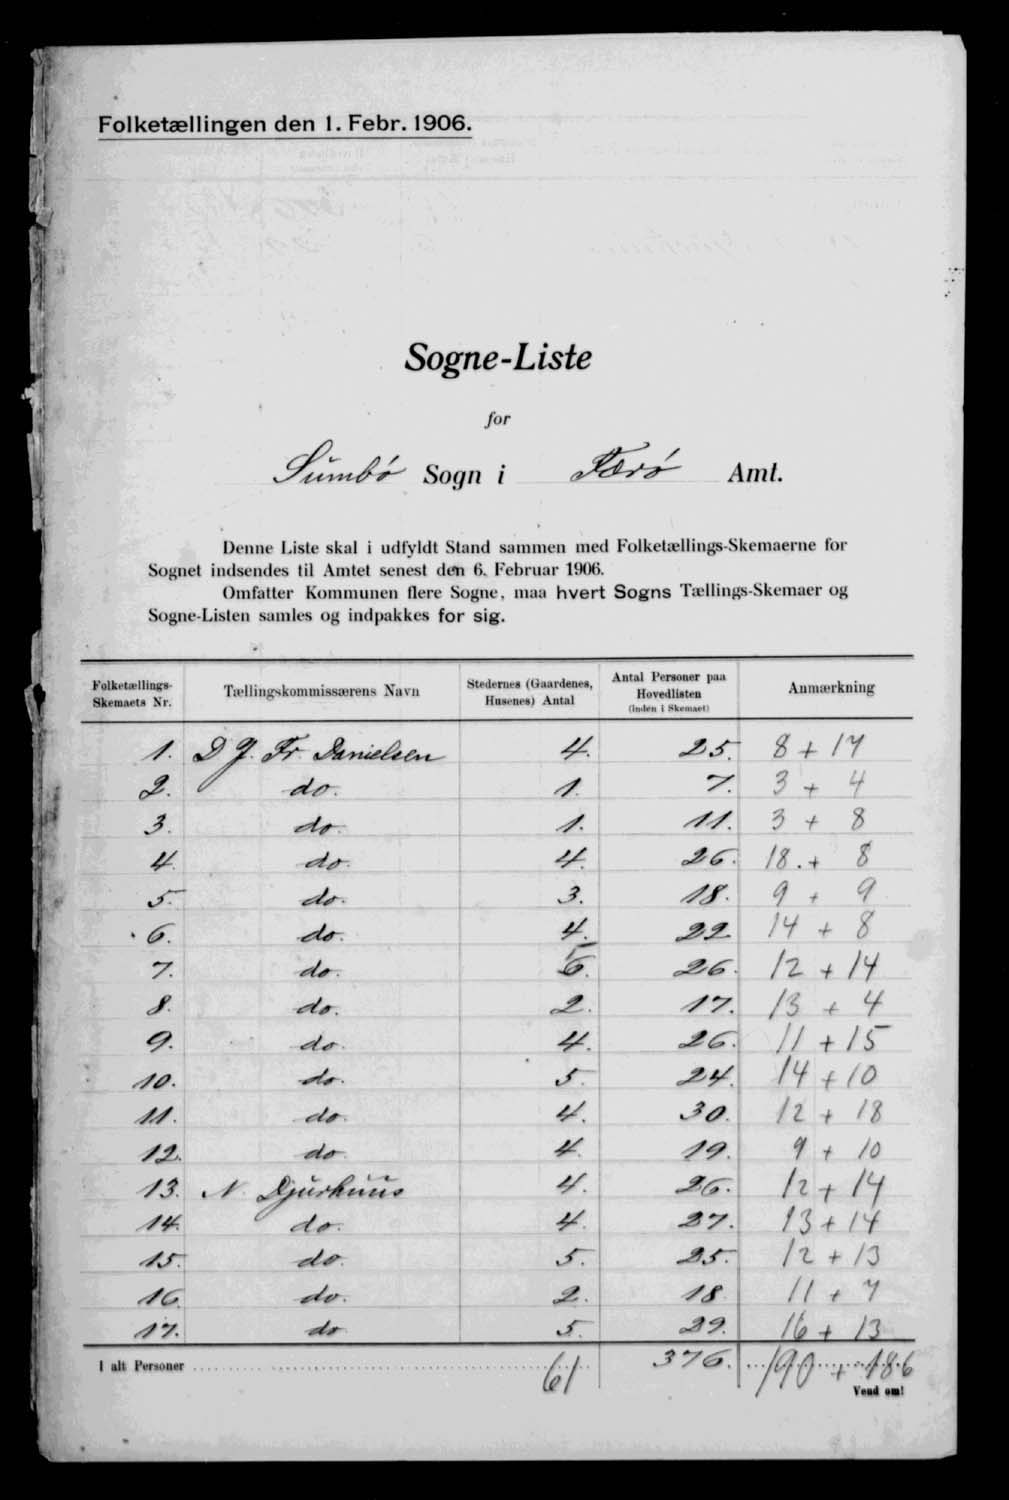 Folketællingen den 1. Febr. 1906.
Sogne-Liste
for
Sumbø Sogn i Færø Amt.
Denne Liste skal i udfyldt Stand sammen med Folketællings-Skemaerne for
Sognet indsendes til Amtet senest den 6. Februar 1906.
Omfatter Kommunen flere Sogne, maa hvert Sogns Tællings-Skemaer og
Sogne-Listen samles og indpakkes for sig.
Folketællings-Skemaets Nr. Tællingskommissærens Navn Stedernes (Gaardenes, Husenes) Antal Antal Personer paa Hovedlisten (inden i Skemaet) Anmærkning
1. D J. Fr. Danielsen 4. 25. 8 + 17
2. do. 1. 7. 3 + 4
3. do. 1. 11. 3 + 8
4. do. 4. 26. 18. + 8
5. do. 3. 18. 9 + 9
6. do. 4. 22 14 + 8
7. do. 5 6. 26. 12 + 14
8. do. 2. 17. 13 + 4
9. do. 4. 26. 11 + 15
10. do. 5. 24. 14 + 10
11. do. 4. 30. 12 + 18
12. do. 4. 19. 9 + 10
13. N. Djurhuus 4. 26. 12 + 14
14. do. 4. 27. 13 + 14
15. do. 5. 25. 12 + 13
16. do. 2. 18 11 + 7
17. do 5. 29. 16 + 13
I alt Personer 61 376. 190 + 186
Vend om!